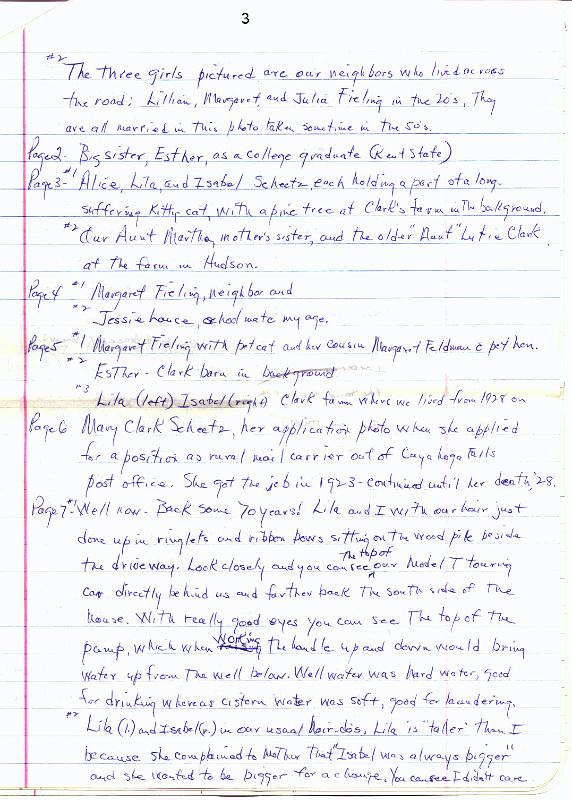 3
#2 The three girls pictured are our neighbors who lived across
the road: Lillian, Margaret, and Julia Fieling in the 20's, They
are all married in this photo taken sometime in the 50's.
Page 2 - Big sister, Esther, as a college graduate (Kent State)
Page 3 - #1 Alice, Lila, and Isabel Scheetz, each holding a part of a long-
suffering Kitty cat, with a pine tree at Clark's farm in the background.
#2 Our Aunt Martha, mother's sister, and the older "Aunt" Lutie Clark
at the farm in Hudson.
Page 4 #1 Margaret Fieling, neighbor and
#2 Jessie , school mate my age.
Page 5 #1 Margaret Fieling with pet cat and her cousin Margaret Feldman & pet hen.
#2 Esther - Clark barn in background
#3 Lila (left) Isabel (right) Clark farm where we lived from 1928 on
Page 6 Mary Clark Scheetz, her application photo when she applied
for a position as rural mail carrier out of Cuyahoga Falls
post office. She got the job in 1923 - continued until her death, '28.
Page 7 #1 - Well now - Back some 70 years! Lila and I with our hair just
done up in ringlets and ribbon bows sitting on the wood pile beside
the driveway. Look closely and you can see the top of our Model T touring
car directly behind us and farther back the south side of the
house. With really good eyes you can see the top of the
pump, which when working the handle up and down would bring
water up from the well below. Well water was hard water, good
for drinking whereas cistern water was soft, good for laundering.
#2 Lila (l.) and Isabel (r.) in our usual hair-dos, Lila is "taller" than I
because she complained to Mother that "Isabel was always bigger"
and she wanted to be bigger for a change. You can see I didn't care.